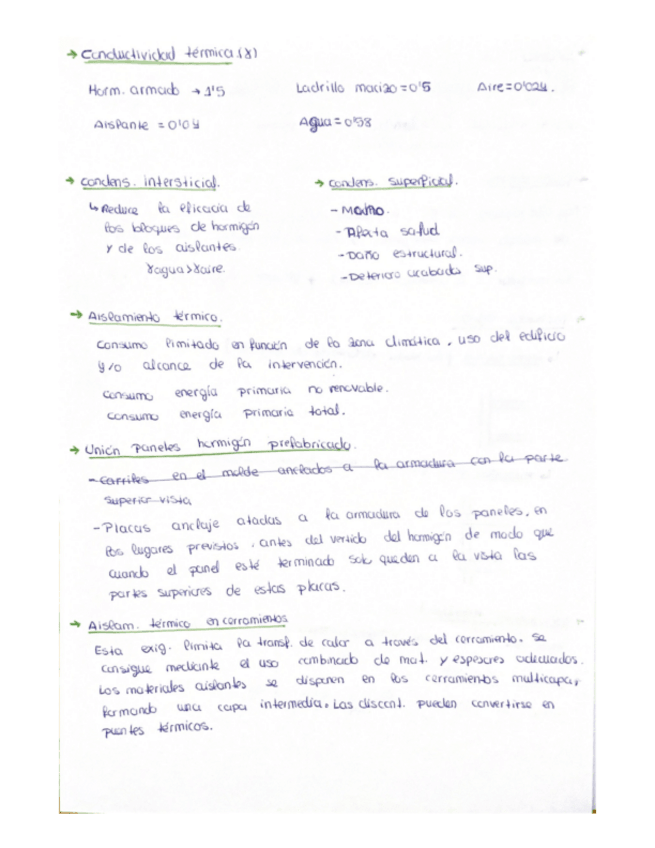 → Conductividad térmica (γ)
Horm. armado → 1'5 Ladrillo macizo = 0'5 Aire = 0'024.
Aislante = 0'04 Agua = 0'58
→ Condens. intersticial. → Condens. superficial.
↳ Reduce la eficacia de
los bloques de hormigón
y de los aislantes.
γagua > γaire.
- Moho.
- Afecta salud
- Daño estructural.
- Deterioro acabado sup.
→ Aislamiento térmico.
Consumo limitado en función de la zona climática, uso del edificio
y/o alcance de la intervención.
Consumo energía primaria no renovable.
Consumo energía primaria total.
→ Unión paneles hormigón prefabricado.
- Carriles en el molde anclados a la armadura con la parte
superior vista
- Placas anclaje atadas a la armadura de los paneles, en
los lugares previstos, antes del vertido del hormigón de modo que
cuando el panel esté terminado solo queden a la vista las
partes superiores de estas placas.
→ Aislam. térmico en cerramientos
Esta exig. limita la transf. de calor a través del cerramiento. Se
consigue mediante el uso combinado de mat. y espesores adecuados.
Los materiales aislantes se disponen en los cerramientos multicapa,
formando una capa intermedia. Las discont. pueden convertirse en
puentes térmicos.